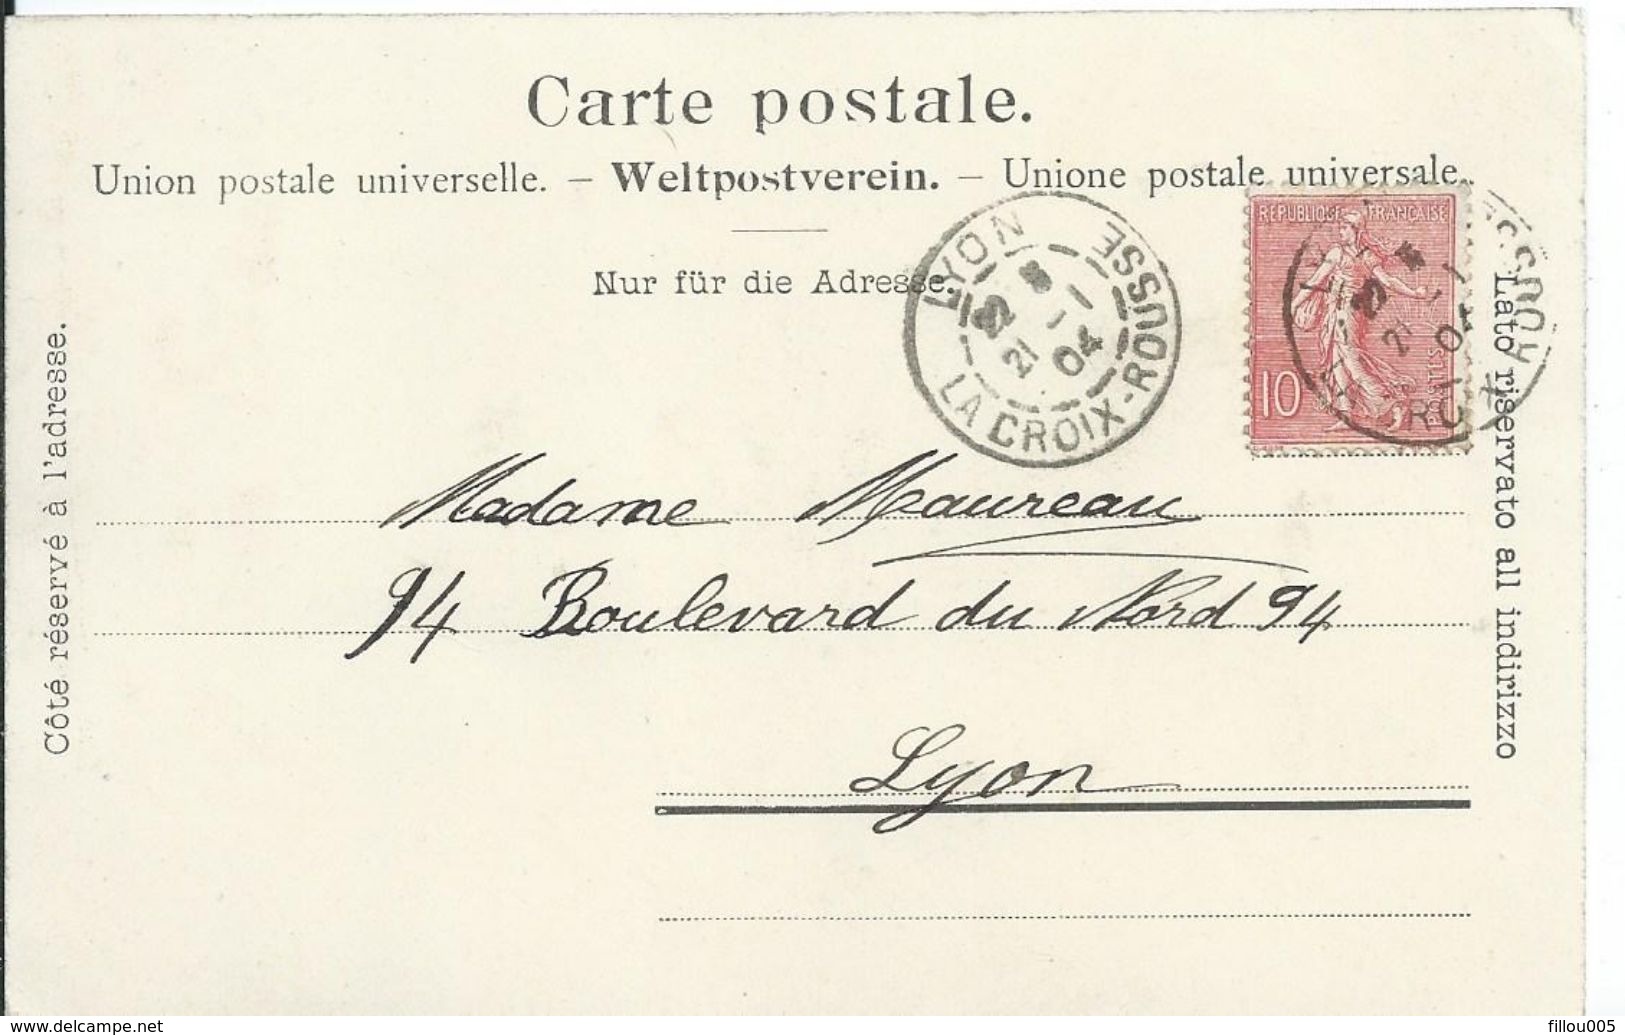 Carte postale.
Union postale universelle. – Weltpostverein. – Unione postale universale.
Nur für die Adresse.
Côté réservé à l'adresse.
Lato riservato all indirizzo
LYON
LA CROIX-ROUSSE
21
1
04
REPUBLIQUE FRANÇAISE
10
POSTES
Madame Maureau
94 Boulevard du Nord 94
Lyon
www.delcampe.net
fillou005